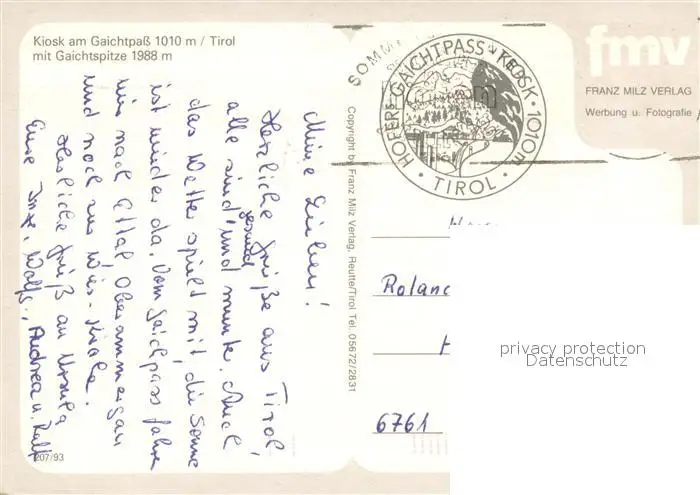 Kiosk am Gaichtpaß 1010 m / Tirol
mit Gaichtspitze 1988 m
Meine Lieben!
Herzliche Grüße aus Tirol,
alle sind gesund und munter. Auch
das Wetter spielt mit, die Sonne
ist wieder da. Vom Gaichtpass fahren
wir nach Ettal Oberammergau
und noch zur Wies-Kirche.
Herzliche Grüße an Ursula
Eure Inge, Wolfg., Andrea u. Ralf
207/93
Copyright by Franz Milz Verlag, Reutte/Tirol Tel. 05672/2831
SOMM
HOFERS GAICHTPASS KIOSK · 1010m · TIROL ·
fmv
FRANZ MILZ VERLAG
Werbung u. Fotografie
Roland
6761
privacy protection
Datenschutz